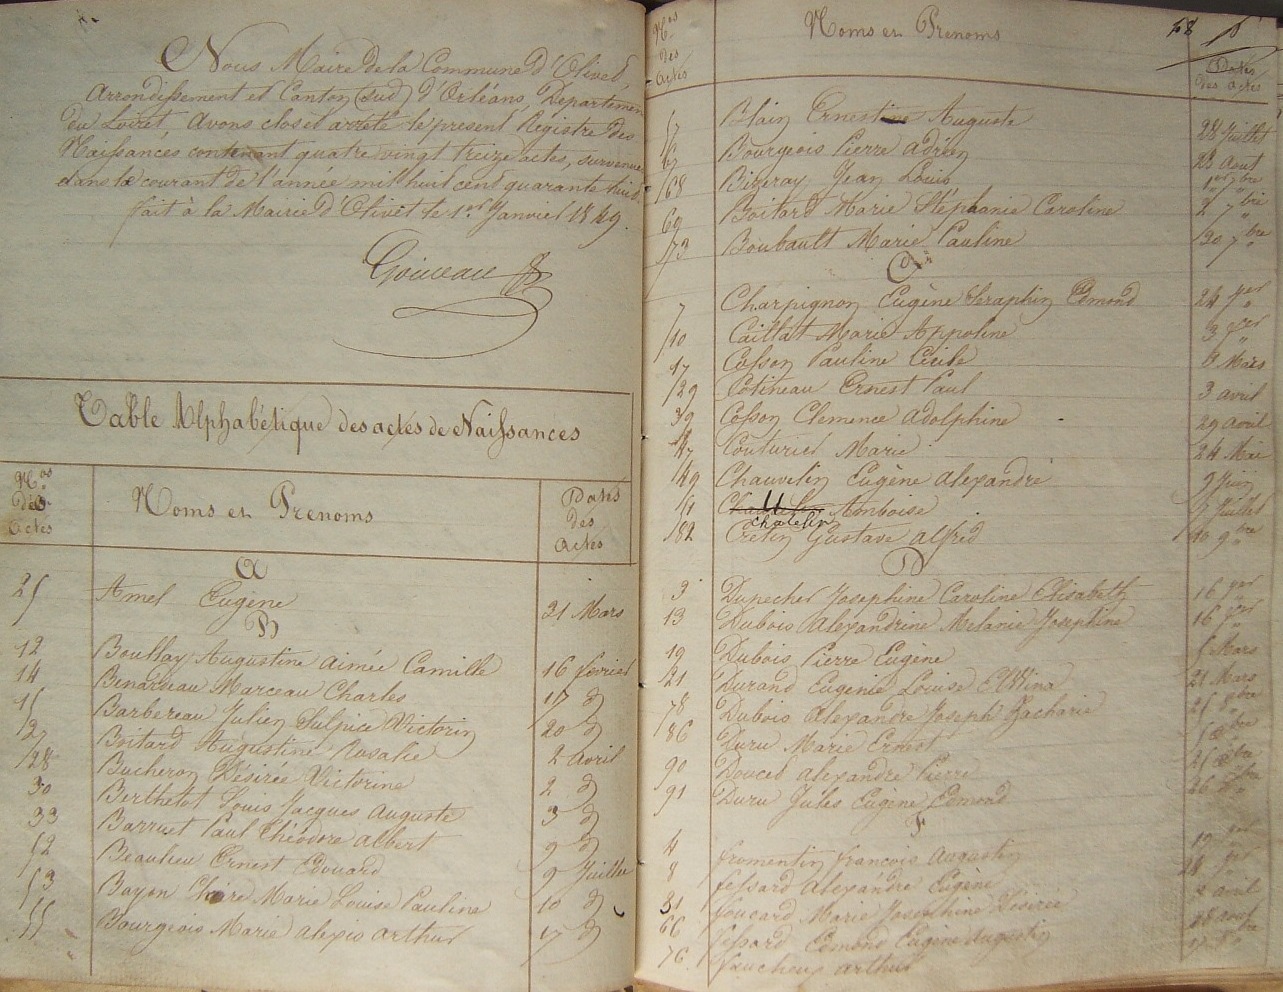 Nous Maire de la Commune d'Olivet
Arrondissement et Canton (sud) d'Orléans, Departement
du Loiret, Avons clos et arrêté le présent Régistre des
Naissances contenant quatre vingt treize actes, survenus
dans le courant de l'année mil huit cent quarante huit.
fait à la Mairie d'Olivet le 1er Janvier 1849.
Table Alphabétique des actes de Naissances
Nos des actes
Noms et Prenoms
Dates des actes
A
25 Amel Eugène 31 Mars
B
12 Boullay Augustine aimée Camille 16 février
14 Benardeau Marceau Charles 17 d
15 Barbereau Julien Sulpice Victorin 20 d
27 Boitard Augustine Rosalie 2 avril
28 Bucheron Désirée Victorine 2 d
30 Berthelot Louis Jacques Auguste 3 d
33 Barruet Paul Théodore Albert 9 d
52 Beaulieu Ernest Edouard 9 Juillet
53 Bayon Claire Marie Louise Pauline 10 d
55 Bourgeois Marie alexis arthur 17 d
58
Nos des actes
Noms et Prenoms
Dates des actes
57 Blain Ernestine Auguste 28 Juillet
Bourgeois Pierre adrien 23 Aout
68 Bizeray Jean Louis 1er 7bre
69 Boitard Marie Stéphanie Caroline 2 7bre
73 Boubault Marie Pauline 30 7bre
C
7 Charpignon Eugène Seraphin Edmond 24 Jer
10 Caillat Marie Appoline 3 fer
17 Cosson Pauline Cécile Mars
29 Cotineau Ernest Paul 3 avril
39 Cosson Clemence Adolphine 29 avril
47 Couturier Marie 24 Mai
49 Chauvelin Eugène Alexandre 9 Juin
51 chatelin Ambroise Juillet
82 Cretin Gustave alfred 10 9bre
D
3 Dupecher Josephine Caroline Elisabeth 16 Jer
13 Dubois Alexandrine Melanie Josephine 16 fer
19 Dubois Pierre Eugène 5 Mars
21 Durand Eugenie Louise Elvina 21 Mars
78 Dubois Alexandre Joseph Zacharie 25 8bre
86 Duru Marie Ernest
90 Doucet alexandre Pierre
91 Duru Jules Eugène Edmond
F
4 fromentin françois Augustin 19 Jer
8 fessard Alexandre Eugène 28 Jer
31 foucard Marie Josephine Désirée avril
66 fessard Edmond Eugène Augustin 28 aout
76 faucheux arthur